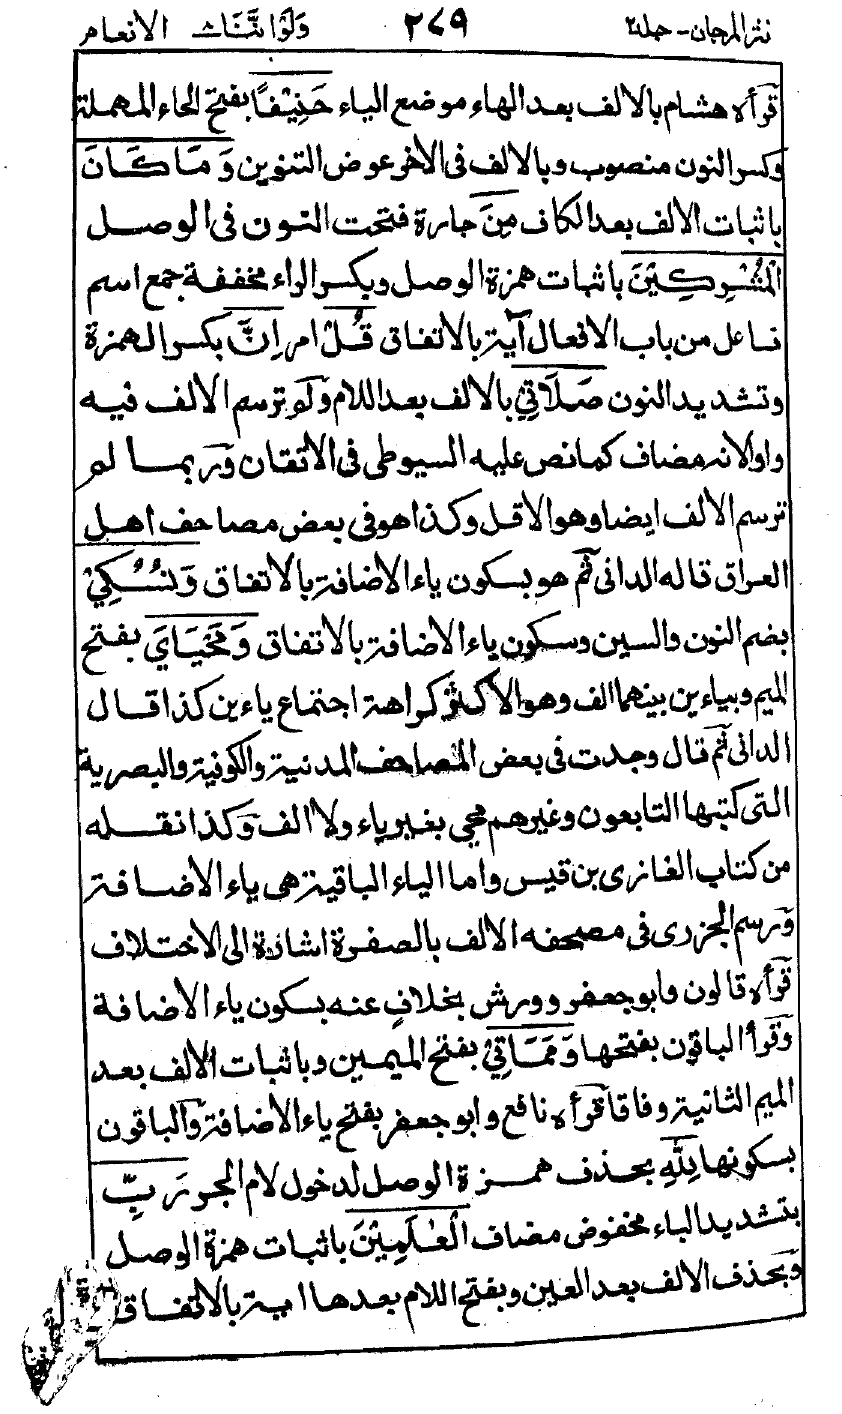 نثر المرجان - جلد ٢ ٢٧٩ ولو اننا الانعام
قرأه هشام بالالف بعد الهاء موضع الياء حَنِيْفًا بفتح الحاء المهملة
وكسر النون منصوب وبالالف فى الاخر عوض التنوين وَمَا كَانَ
باثبات الالف بعد الكاف مِنَ جارة فتحت النون فى الوصل
الْمُشْرِكِيْنَ باثبات همزة الوصل وبكسر الراء مخففة جمع اسم
فاعل من باب الافعال آية بالاتفاق قُلْ امر اِنَّ بكسر الهمزة
وتشديد النون صَلَاتِيْ بالالف بعد اللام ولم ترسم الالف فيه
واوا لانه مضاف كما نص عليه السيوطى فى الاتقان وربما لم
ترسم الالف ايضا وهو الاقل وكذا هو فى بعض مصاحف اهل
العراق قاله الدانى ثم هو بسكون ياء الاضافة بالاتفاق وَنُسُكِيْ
بضم النون والسين وسكون ياء الاضافة بالاتفاق وَمَحْيَايَ بفتح
الميم وبياءين بينهما الف وهو الاكثر كراهة اجتماع ياءين كذا قال
الدانى ثم قال وجدت فى بعض المصاحف المدنية والكوفية والبصرية
التى كتبها التابعون وغيرهم محي بغير ياء ولا الف وكذا نقله
من كتاب الغازى بن قيس واما الياء الباقية هى ياء الاضافة
ورسم الجزرى فى مصحفه الالف بالصفرة اشارة الى الاختلاف
قرأه قالون وابو جعفر وورش بخلاف عنه بسكون ياء الاضافة
وقرأ الباقون بفتحها وَمَمَاتِيْ بفتح الميمين وباثبات الالف بعد
الميم الثانية وفاقا قرأه نافع وابو جعفر بفتح ياء الاضافة والباقون
بسكونها لِلّٰهِ بحذف همزة الوصل لدخول لام الجر رَبِّ
بتشديد الباء مخفوض مضاف الْعٰلَمِيْنَ باثبات همزة الوصل
وبحذف الالف بعد العين وبفتح اللام بعدها اية بالاتفاق